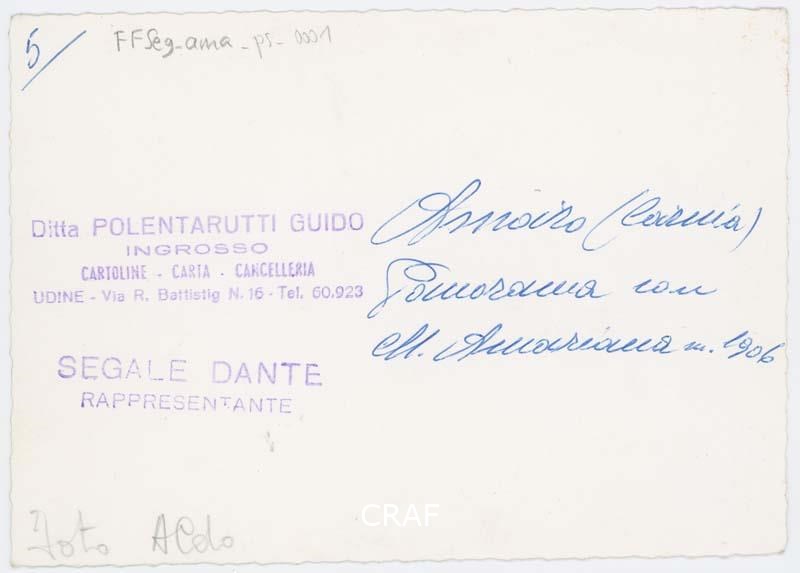 5
FFSeg-ama-ps-0001
Ditta POLENTARUTTI GUIDO
INGROSSO
CARTOLINE - CARTA - CANCELLERIA
UDINE - Via R. Battistig N. 16 - Tel. 60.923
SEGALE DANTE
RAPPRESENTANTE
Amaro (Carnia)
Panorama con
M. Amariana m. 1906
Foto Aldo
CRAF